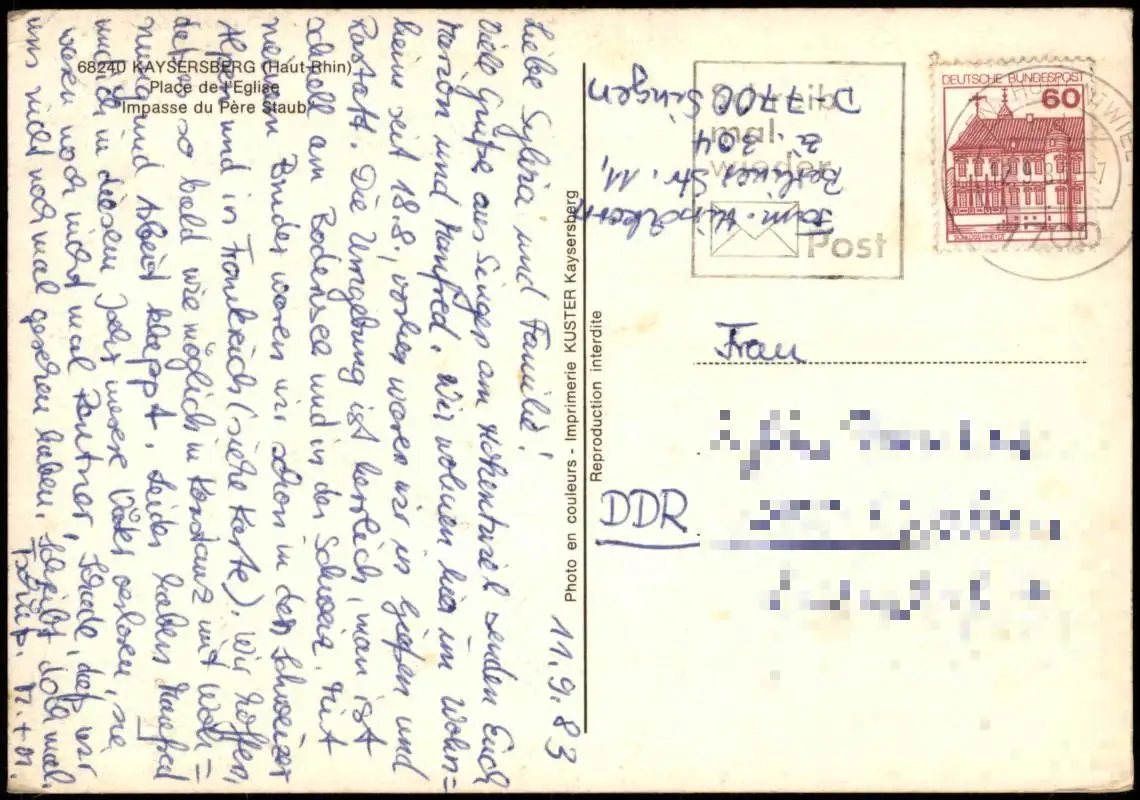 68240 KAYSERSBERG (Haut-Rhin)
Place de l'Eglise
Impasse du Père Staub
11.9.83
Liebe Sylvia und Familie!
Viele Grüße aus Singen am Hohentwiel senden Euch
Marion und Manfred. Wir wohnen hier im Wohn=
heim seit 18.8., vorher waren wir in Gießen und
Rastatt. Die Umgebung ist herrlich, man ist
schnell am Bodensee und in der Schweiz. Mit
meinem Bruder waren wir schon in den Schweizer
Alpen und in Frankreich (siehe Karte). Wir hoffen,
daß es so bald wie möglich in Konstanz mit Woh=
nung und Arbeit klappt. Leider haben Manfred
und ich in diesem Jahr unsere Väter verloren, sie
waren noch nicht mal Rentner. Schade, daß wir
uns nicht noch mal gesehen haben. Schreibt doch mal.
Tschüß. M. + M.
Photo en couleurs - Imprimerie KUSTER Kaysersberg
Reproduction interdite
Fam.
Berliner Str. 11,
Z. 304
D-7700 Singen
Schreib
mal
wieder
Post
DEUTSCHE BUNDESPOST
60
SCHLOSS RHEYDT
7700
Frau
DDR